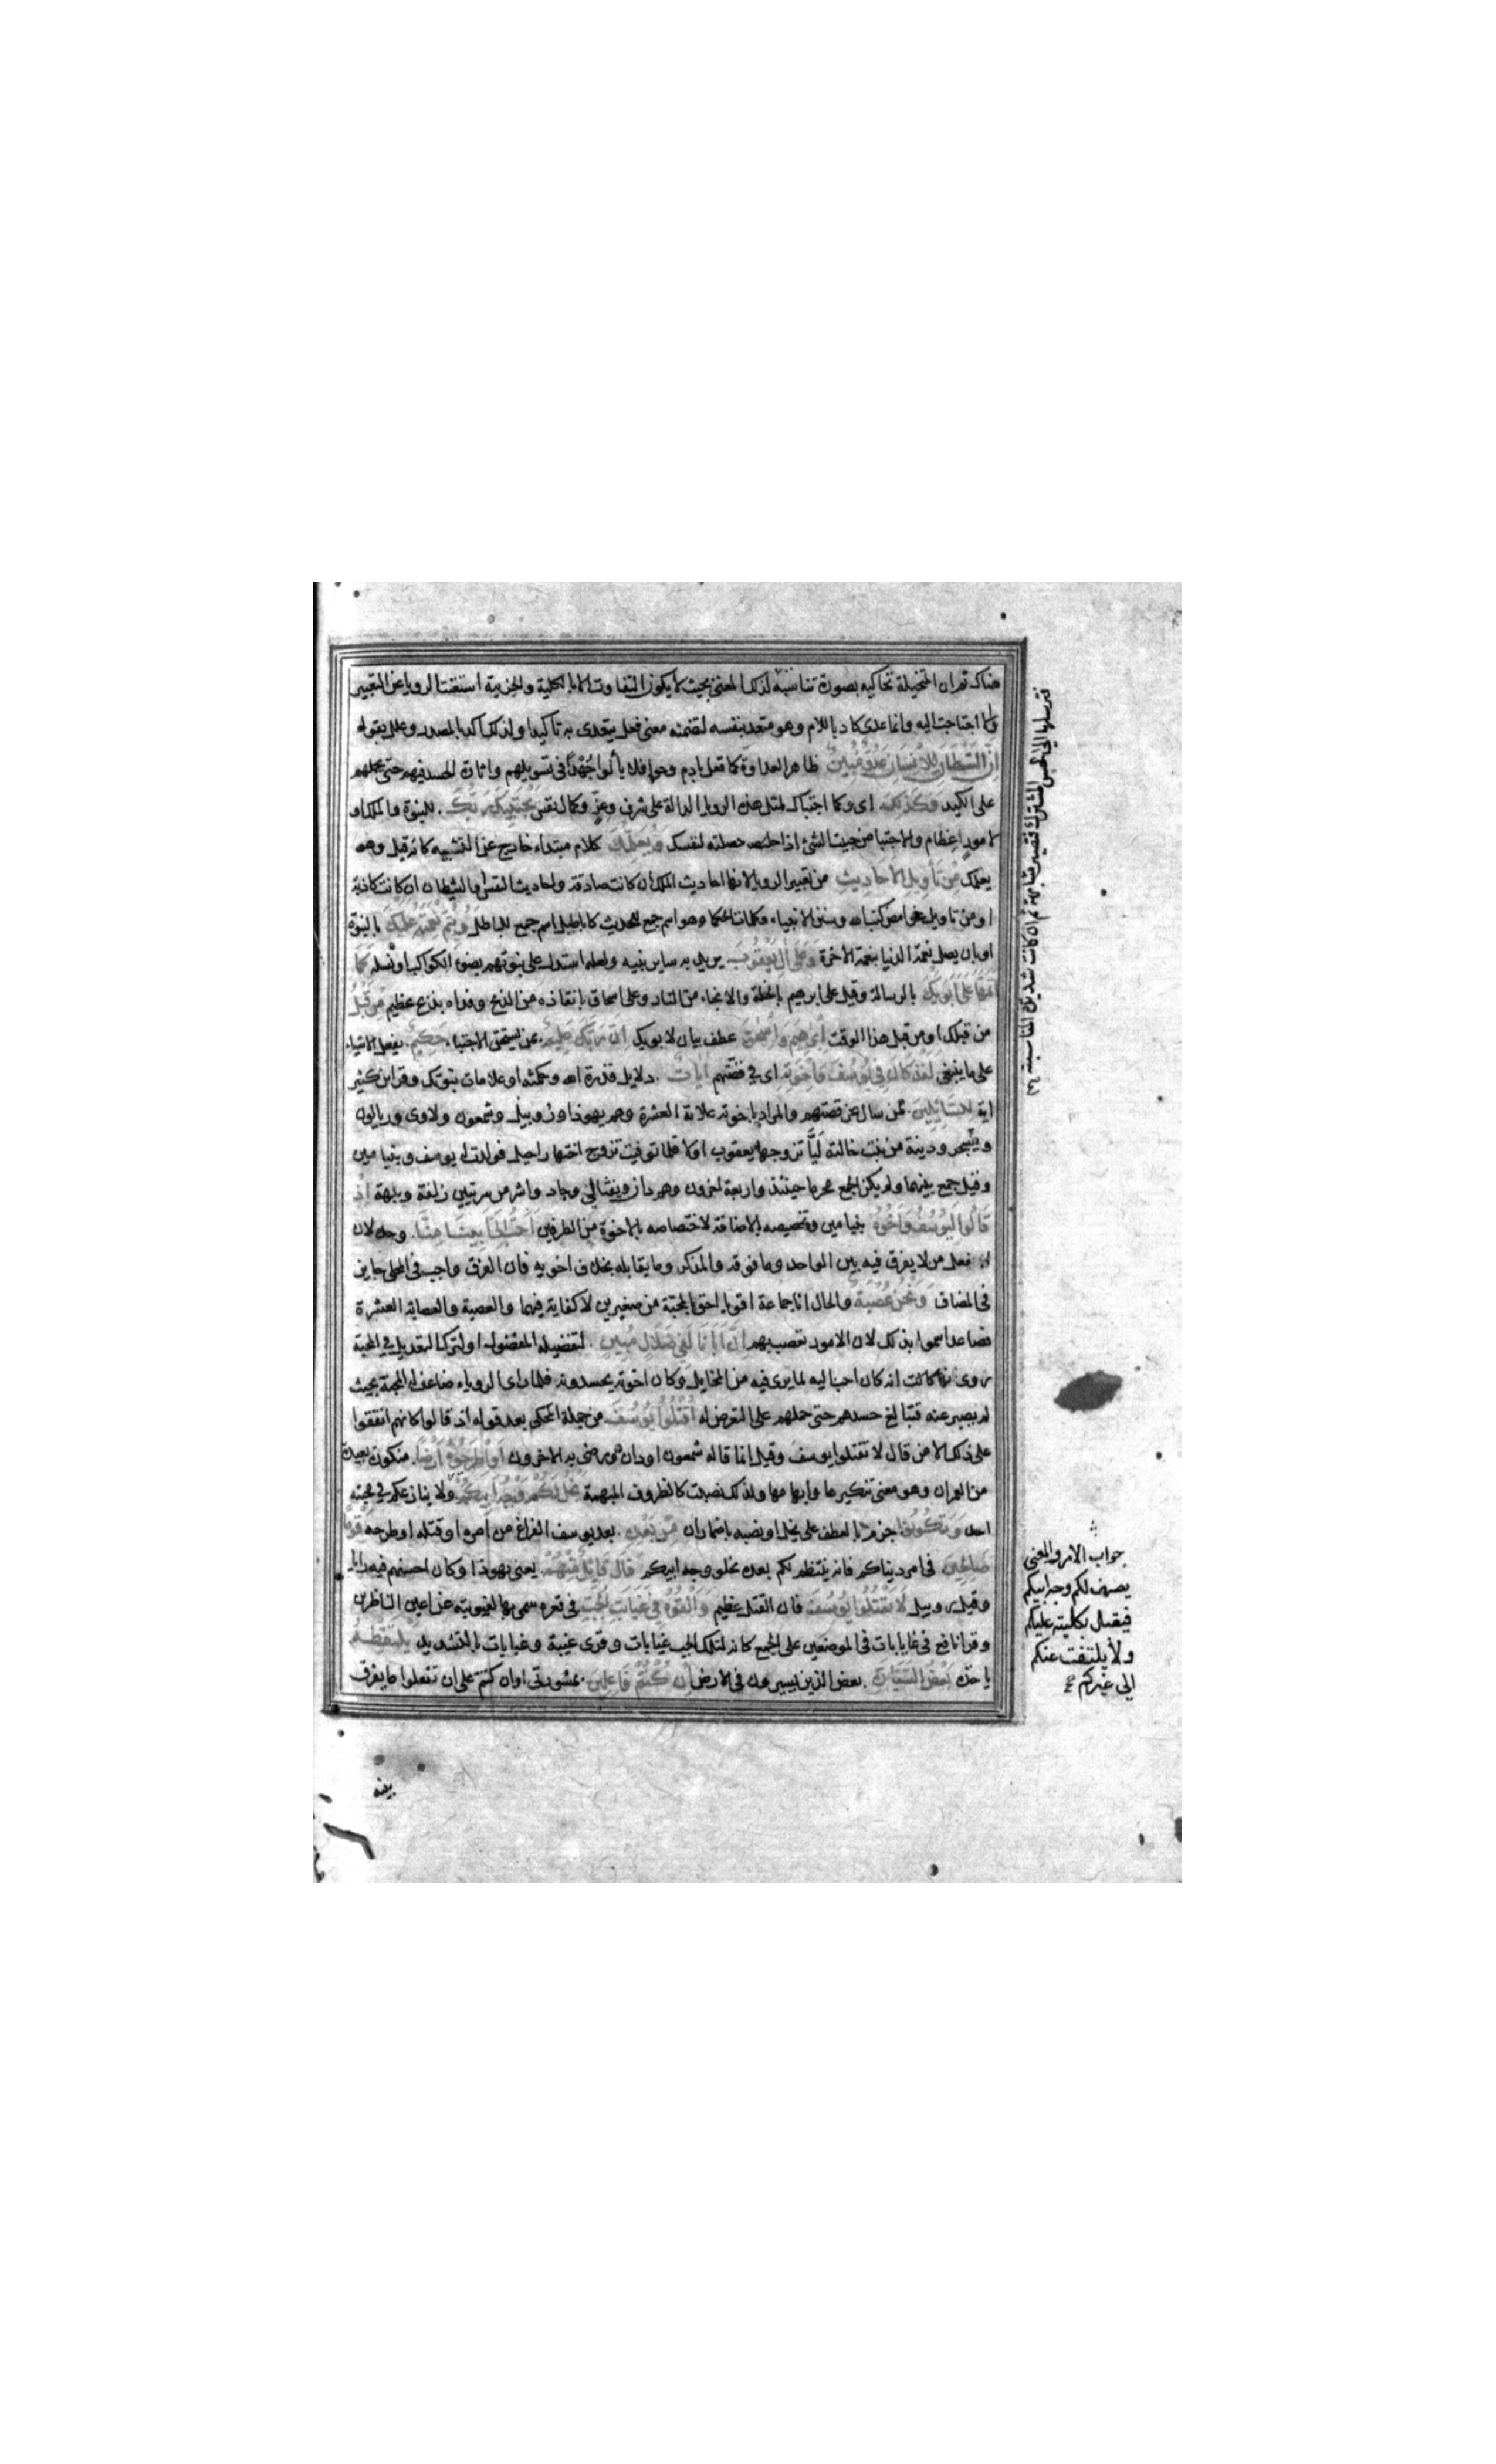 هناك ثم ان المتخيلة تحاكيه بصورة تناسبه لذلك المعنى بحيث لا يكون التفاوت الا بالكلية والجزئية استغنت الرويا عن التعبير
والا احتاجت اليه وانما عدى كاد باللام وهو متعد بنفسه لتضمنه معنى فعل يتعدى به تاكيدا ولذلك اكد بالمصدر وعلله بقوله
اِنَّ الشَّيْطَانَ لِلْاِنْسَانِ عَدُوٌّ مُبِينٌ ظاهر العداوة كما فعل بادم وحوا فلا يألوا جُهْدًا في تسويلهم واثارة الحسد فيهم حتى يحملهم
على الكيد وَكَذَلِكَ اى وكما اجتباك لمثل هذه الرويا الدالة على شرف وعزّ وكمال نفس يَجْتَبِيكَ رَبُّكَ للنبوة والملك او
لامور عظام والاجتبا من جبيت الشئ اذا حصلته لنفسك وَيُعَلِّمُكَ كلام مبتداء خارج عن التشبيه كانه قيل وهو
يعلمك مِنْ تَأْوِيلِ الْاَحَادِيثِ من تعبير الرويا لانها احاديث الملك ان كانت صادقة واحاديث النفس والشيطان ان كانت كاذبة
او من تاويل غوامض كتب الله وسنن الانبياء وكلمات الحكما وهو اسم جمع للحديث كاباطيل اسم جمع للباطل وَيُتِمُّ نِعْمَتَهُ عَلَيْكَ بالنبوة
او بان يصل نعمة الدنيا بنعمة الاخرة وَعَلَى اٰلِ يَعْقُوبَ يريد به ساير بنيه ولعله استدل على نبوتهم بضوء الكواكب او نسله كَمَا
اَتَمَّهَا عَلَى اَبَوَيْكَ بالرسالة وقيل على ابرهيم بالخلة والانجاء من النار وعلى اسحاق بانقاذه من الذبح وفداه بذبح عظيم مِنْ قَبْلُ
من قبلك او من قبل هذا الوقت اِبْرٰهِيمَ وَاِسْحٰقَ عطف بيان لابويك اِنَّ رَبَّكَ عَلِيمٌ بمن يستحق الاجتباء حَكِيمٌ يفعل الاشياء
على ما ينبغى لَقَدْ كَانَ فِي يُوسُفَ وَاِخْوَتِهِ اى في قصّتهم اٰيَاتٌ دلايل قدرة الله وحكمته او علامات نبوتك وقرا ابن كثير
اية لِلسَّائِلِينَ لمن سال عن قصتهم والمراد باخوته علاته العشرة وهم يهوذا وروبيل وشمعون ولاوى وريالون
ويشجر ودينة من بنت خالته ليّا تزوجها يعقوب اولا فلما توفيت تزوج اختها راحيل فولدت له يوسف وبنيامين
وقيل جمع بينهما ولم يكن الجمع محرما حينئذ واربعة اخرون وهم دان ونفتالي وجاد واشر من سريتين زلفة وبلهة اِذْ
قَالُوا لَيُوسُفُ وَاَخُوهُ بنيامين وتخصيصه بالاضافة لاختصاصه بالاخوة من الطرفين اَحَبُّ اِلَى اَبِينَا مِنَّا وحده لان
افعل من لا يفرق فيه بين الواحد وما فوقه والمذكر وما يقابله بخلاف اخويه فان الفرق واجب في المحلى جايز
في المضاف وَنَحْنُ عُصْبَةٌ والحال انا جماعة اقويا احق بالمحبّة من صغيرين لا كفاية فيهما والعصبة والعصابة العشرة
فصاعدا سموا بذلك لان الامور تعصب بهم اِنَّ اَبَانَا لَفِي ضَلَالٍ مُبِينٍ لتفضيله المفضول او لترك التعديل في المحبّة
روى انه كانت انه كان احب اليه لما يرى فيه من المخايل وكان اخوته يحسدونه فلما راى الروياء ضاعف له المحبة بحيث
لم يصبر عنه فتبالغ حسدهم حتى حملهم على التعرض له اُقْتُلُوا يُوسُفَ من جملة المحكى بعد قوله اذ قالوا كانهم اتفقوا
على ذلك الا من قال لا تقتلوا يوسف وقيل انما قاله شمعون او دان ورضى به الاخرون اَوِ اطْرَحُوهُ اَرْضًا منكورة بعيدة
من العمران وهو معنى تنكيرها وابهامها ولذلك نصبت كالظروف المبهمة يَخْلُ لَكُمْ وَجْهُ اَبِيكُمْ ولا ينازعكم في محبته
احد وَتَكُونُوا جزم بالعطف على يخل او نصب باضمار ان مِنْ بَعْدِهِ بعد يوسف الفراغ من امره او قتله او طرحه قَوْمًا
صَالِحِينَ في امر دنياكم فانه ينتظم لكم بعده بخلو وجه ابيكم قَالَ قَائِلٌ مِنْهُمْ يعنى يهوذا وكان احسنهم فيه رايا
وقيل روبيل لَا تَقْتُلُوا يُوسُفَ فان القتل عظيم وَاَلْقُوهُ فِي غَيَابَتِ الْجُبِّ في قعره سمى بها لغيبوبته عن اعين الناظرين
وقرا نافع في غيابات في الموضعين على الجمع كانه لتلك الجب غيابات وقرى غيبة وغيابات بالتشديد يَلْتَقِطْهُ
ياخذه بَعْضُ السَّيَّارَةِ بعض الذين يسيرون في الارض اِنْ كُنْتُمْ فَاعِلِينَ بمشورتى او ان كنتم على ان تفعلوا ما يفرق
بينه
فترسلها الى الحس المشترك فتصير مشاهدة ثم ان كانت شديدة المناسبة
جواب الامر والمعنى
يصف لكم وجه ابيكم
فيقبل بكليته عليكم
ولا يلتفت عنكم
الى غيركم